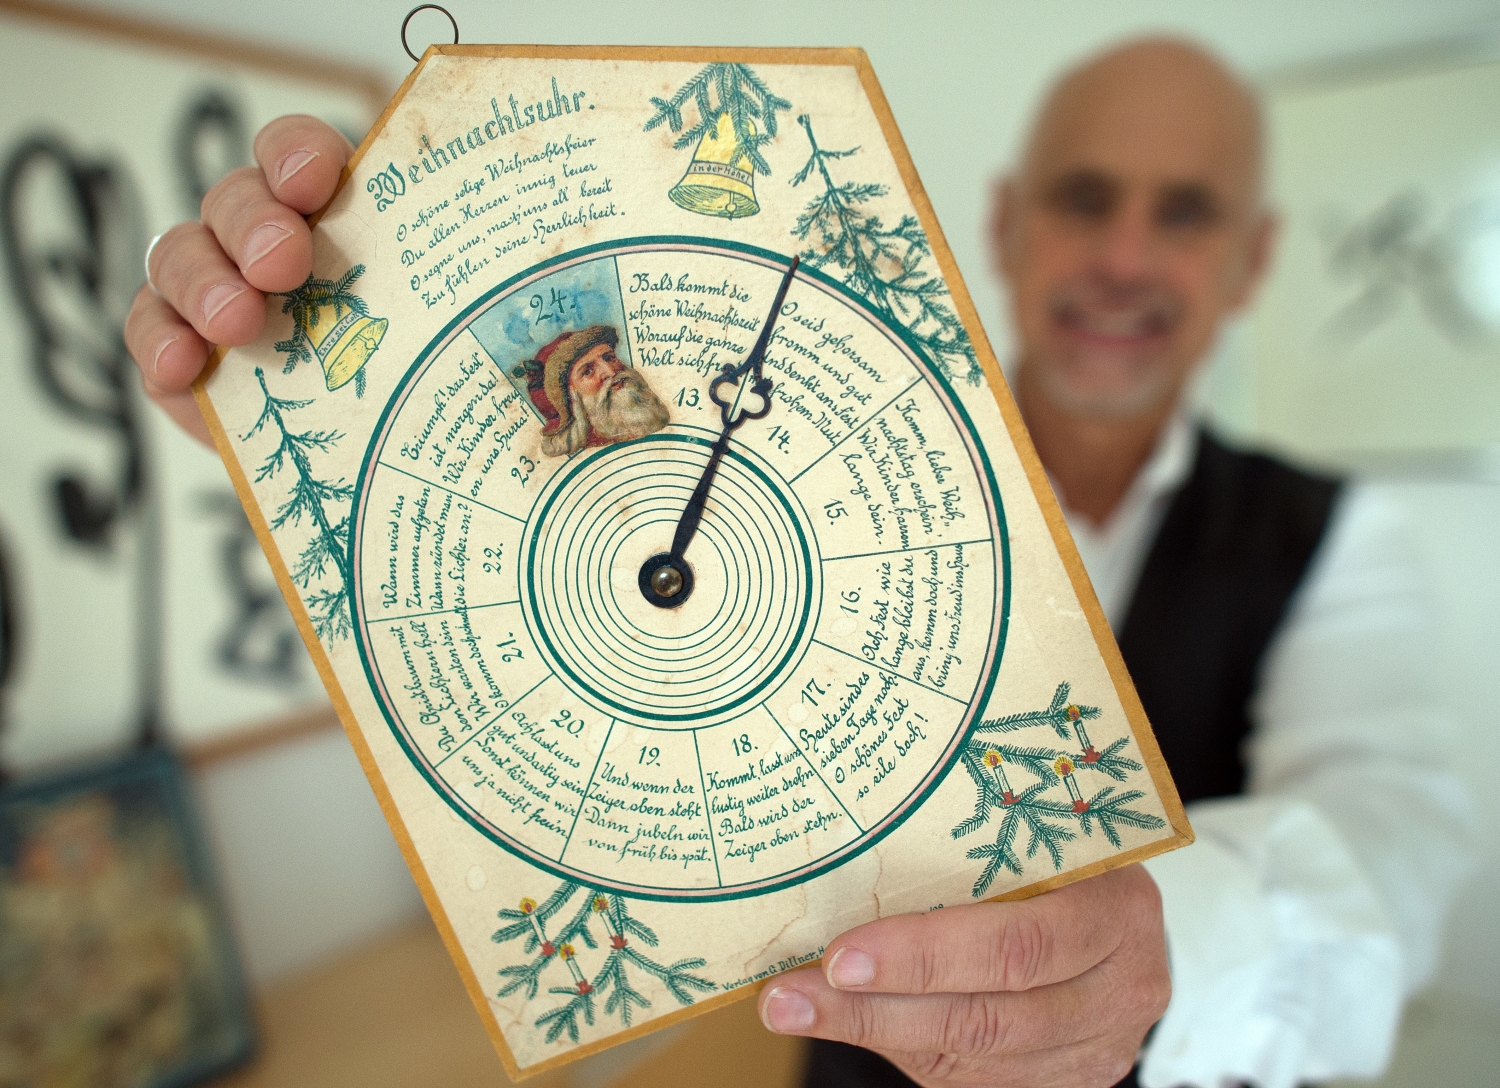 Weihnachtsuhr.
O schöne selige Weihnachtsfeier
Du allen Herzen innig teuer
O segne uns, mach' uns all bereit
Zu fühlen deine Herrlichkeit.
in der Höhe!
Ehre sei Gott
24.
Bald kommt die
schöne Weihnachtszeit
Worauf die ganze
Welt sich
13.
O seid gehorsam
fromm und gut
Und denkt ans Fest
frohem Mut
14.
Komm, lieber Weih-
nachtstag erschein,
Wir Kinder harren
lange dein
15.
Ach Fest wie
lange bleibst du
aus, komm doch und
bring' uns Freud' ins Haus
16.
17.
Heute sind es
sieben Tage noch
O schönes Fest
so eile doch!
18.
Kommt, lasst uns
lustig weiter drehn
Bald wird der
Zeiger oben stehn.
19.
Und wenn der
Zeiger oben steht
Dann jubeln wir
von früh bis spät.
20.
Ach lasst uns
nicht unartig sein
Sonst können wir
uns ja nicht freu'n
21.
Du Christbaum mit
den Lichtern hell
Wir warten dein
komm doch schnell
22.
Wann wird das
Zimmer aufgetan
Wann zündet man
die Lichter an?
23.
Triumph! das Fest
ist morgen da!
Wir Kinder freu-
en uns, Hurra!
Verlag von G. Dittner, H